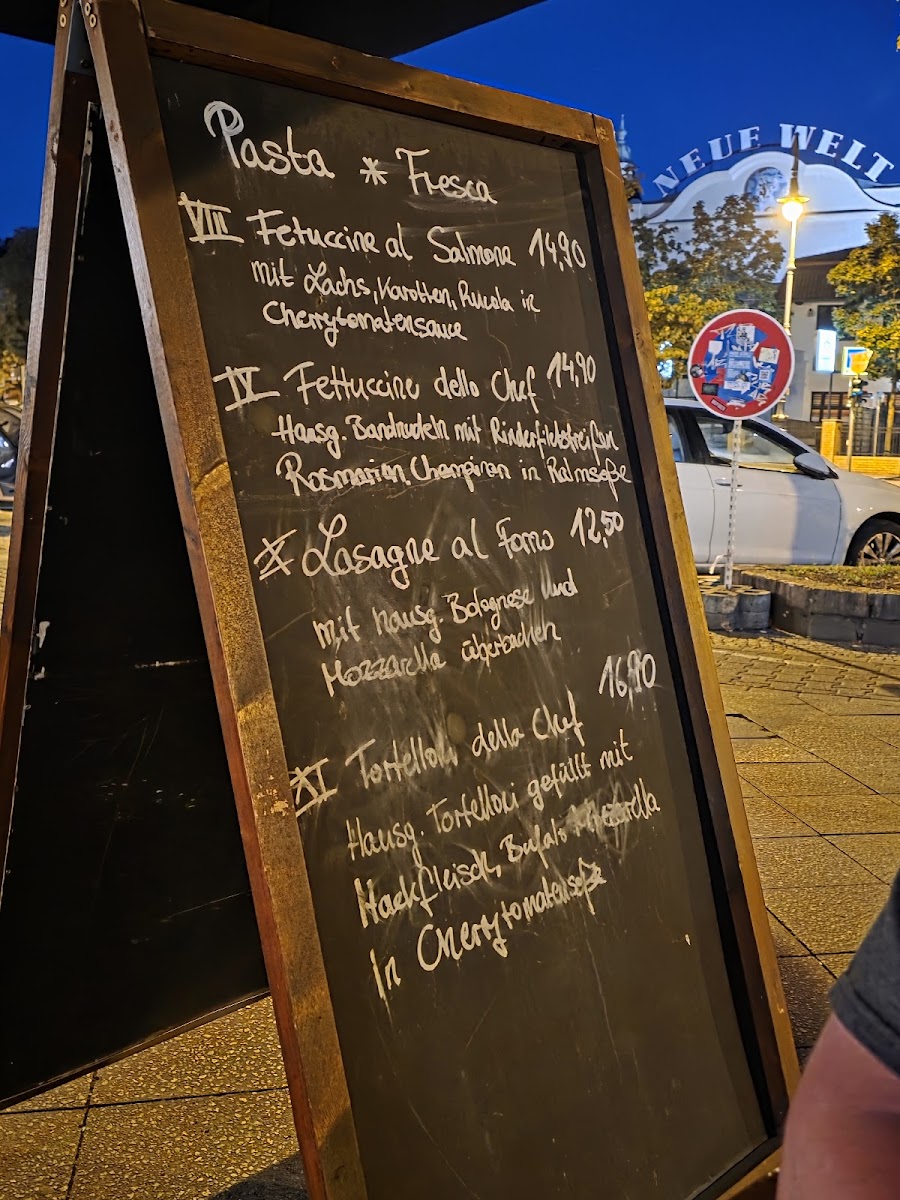 NEUE WELT
Pasta * Fresca
VIII Fetuccine al Salmone 14,90
mit Lachs, Karotten, Rucola in
Cherrytomatensauce
IV Fettuccine dello Chef 14,90
Hausg. Bandnudeln mit Rinderfiletstreifen
Rosmarien, Champinon in Ralmsoße
X Lasagne al Forno 12,50
mit hausg. Bolognese und
Mozzarella überbacken
XI Tortelloni della Chef 16,90
Hausg. Tortelloni gefüllt mit
Hackfleisch, Bufalo Mozzarella
In Cherrytomatensoße